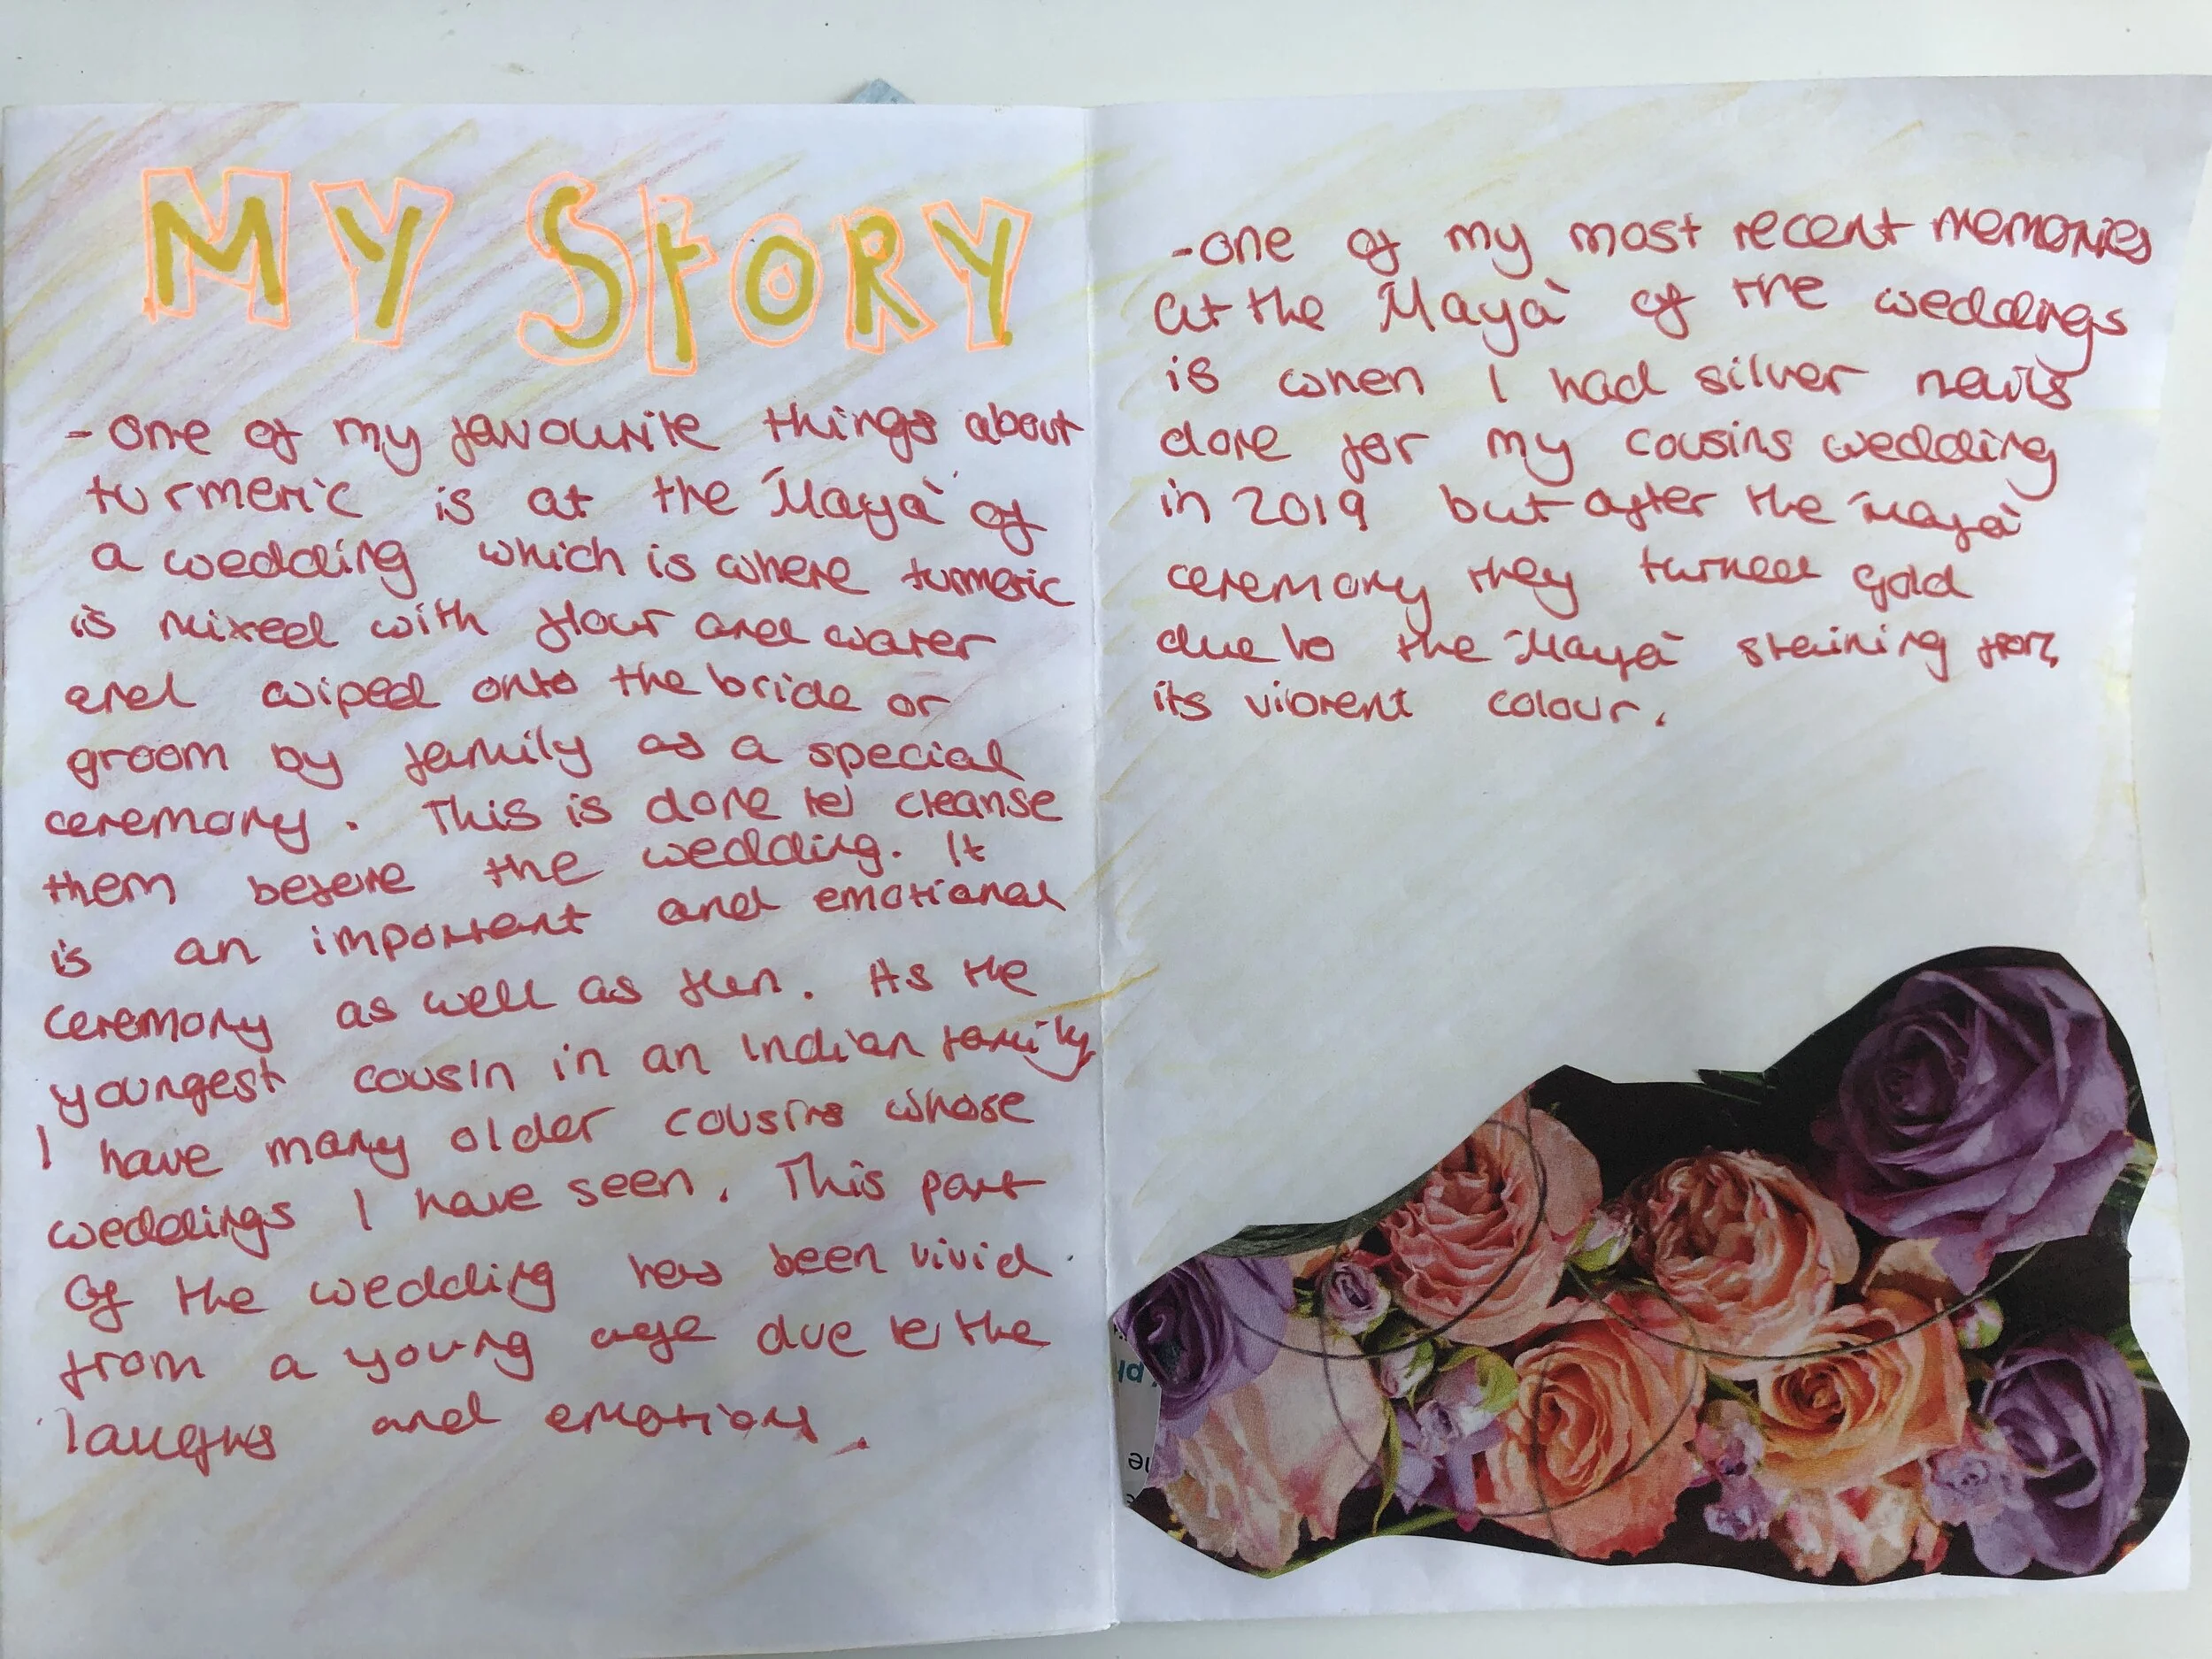 MY StORY
- one of my favourite things about
turmeric is at the 'Maya' of
a wedding which is where turmeric
is mixed with flour and water
and wiped onto the bride or
groom by family as a special
ceremony. This is done to cleanse
them before the wedding. It
is an important and emotional
ceremony as well as fun. As the
youngest cousin in an Indian family
I have many older cousins whose
weddings I have seen. This part
of the wedding has been vivid
from a young age due to the
laughs and emotions.
- one of my most recent memories
at the 'Maya' of the weddings
is when I had silver nails
done for my cousins wedding
in 2019 but after the 'maya'
ceremony they turned gold
due to the 'Maya' staining from
its vibrent colour.